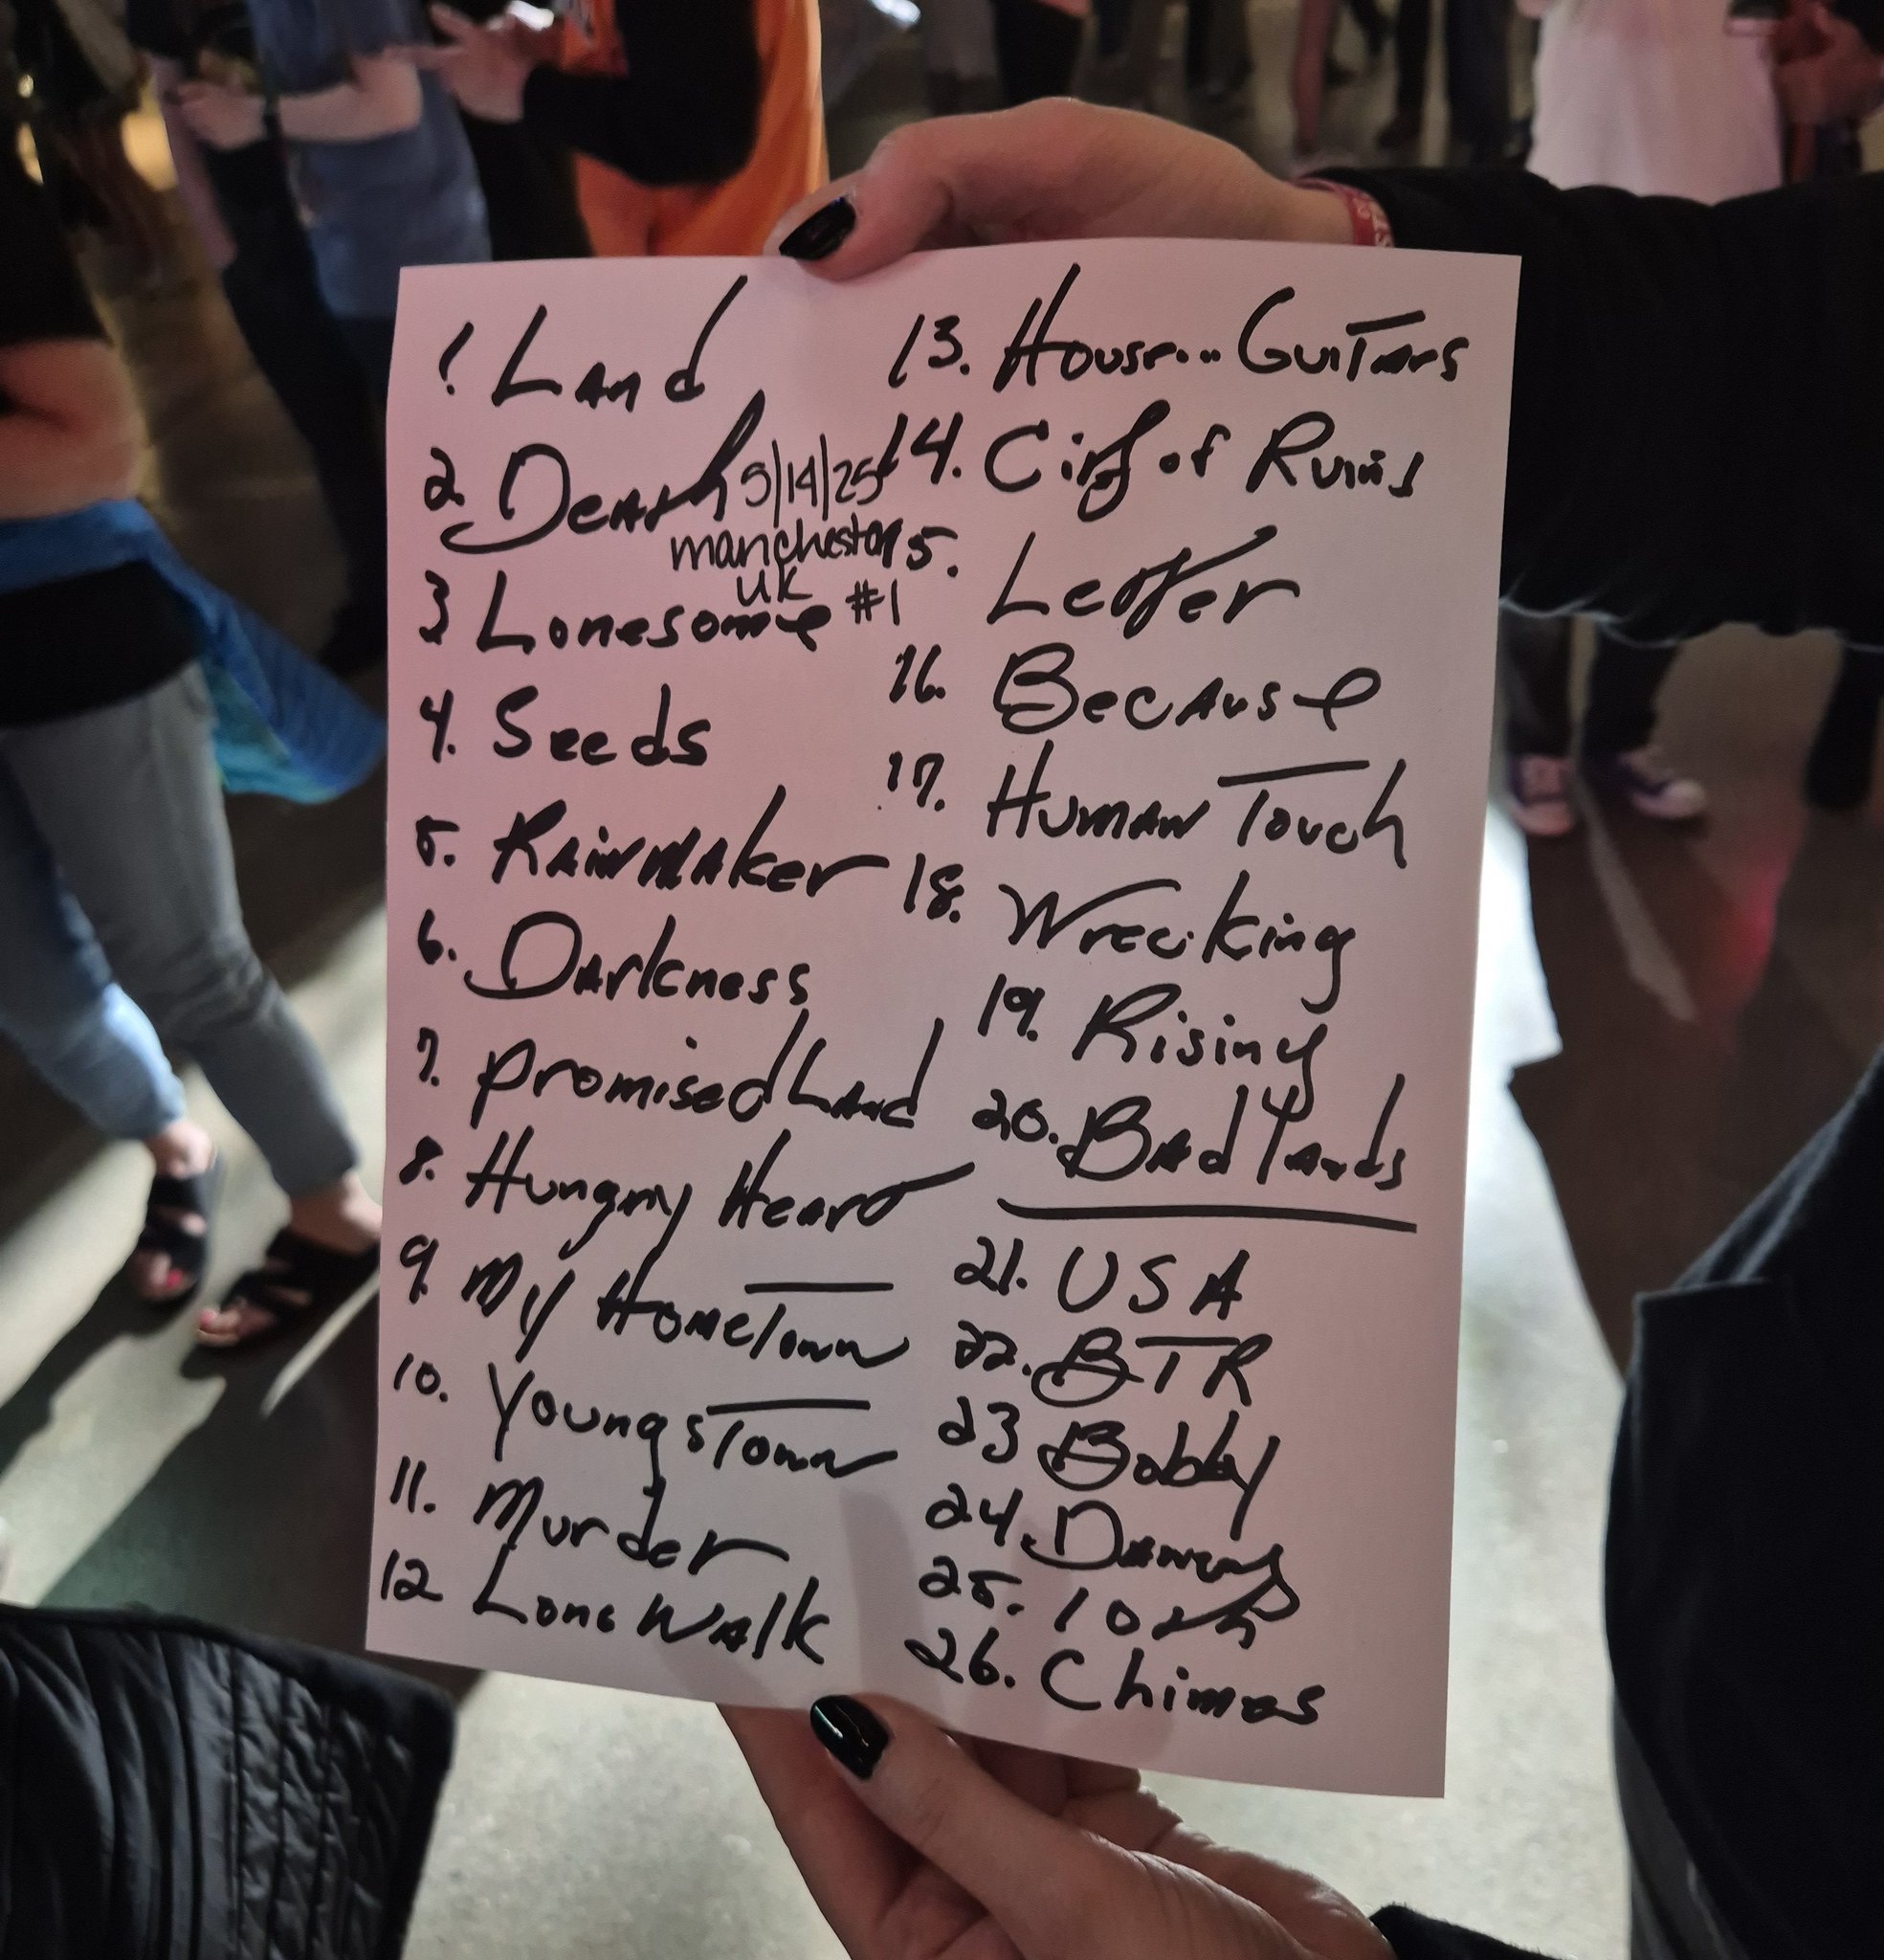 1 Land
2. Death
5/14/25
manchester
UK
#1
3 Lonesome
4. Seeds
5. Rainmaker
6. Darkness
7. Promised Land
8. Hungry Heart
9. My Hometown
10. Youngstown
11. Murder
12 Long Walk
13. House... Guitars
14. City of Ruins
15. Letter
16. Because
17. Human Touch
18. Wrecking
19. Rising
20. Badlands
21. USA
22. BTR
23 Bobby
24. Dancing
25. 10th
26. Chimes